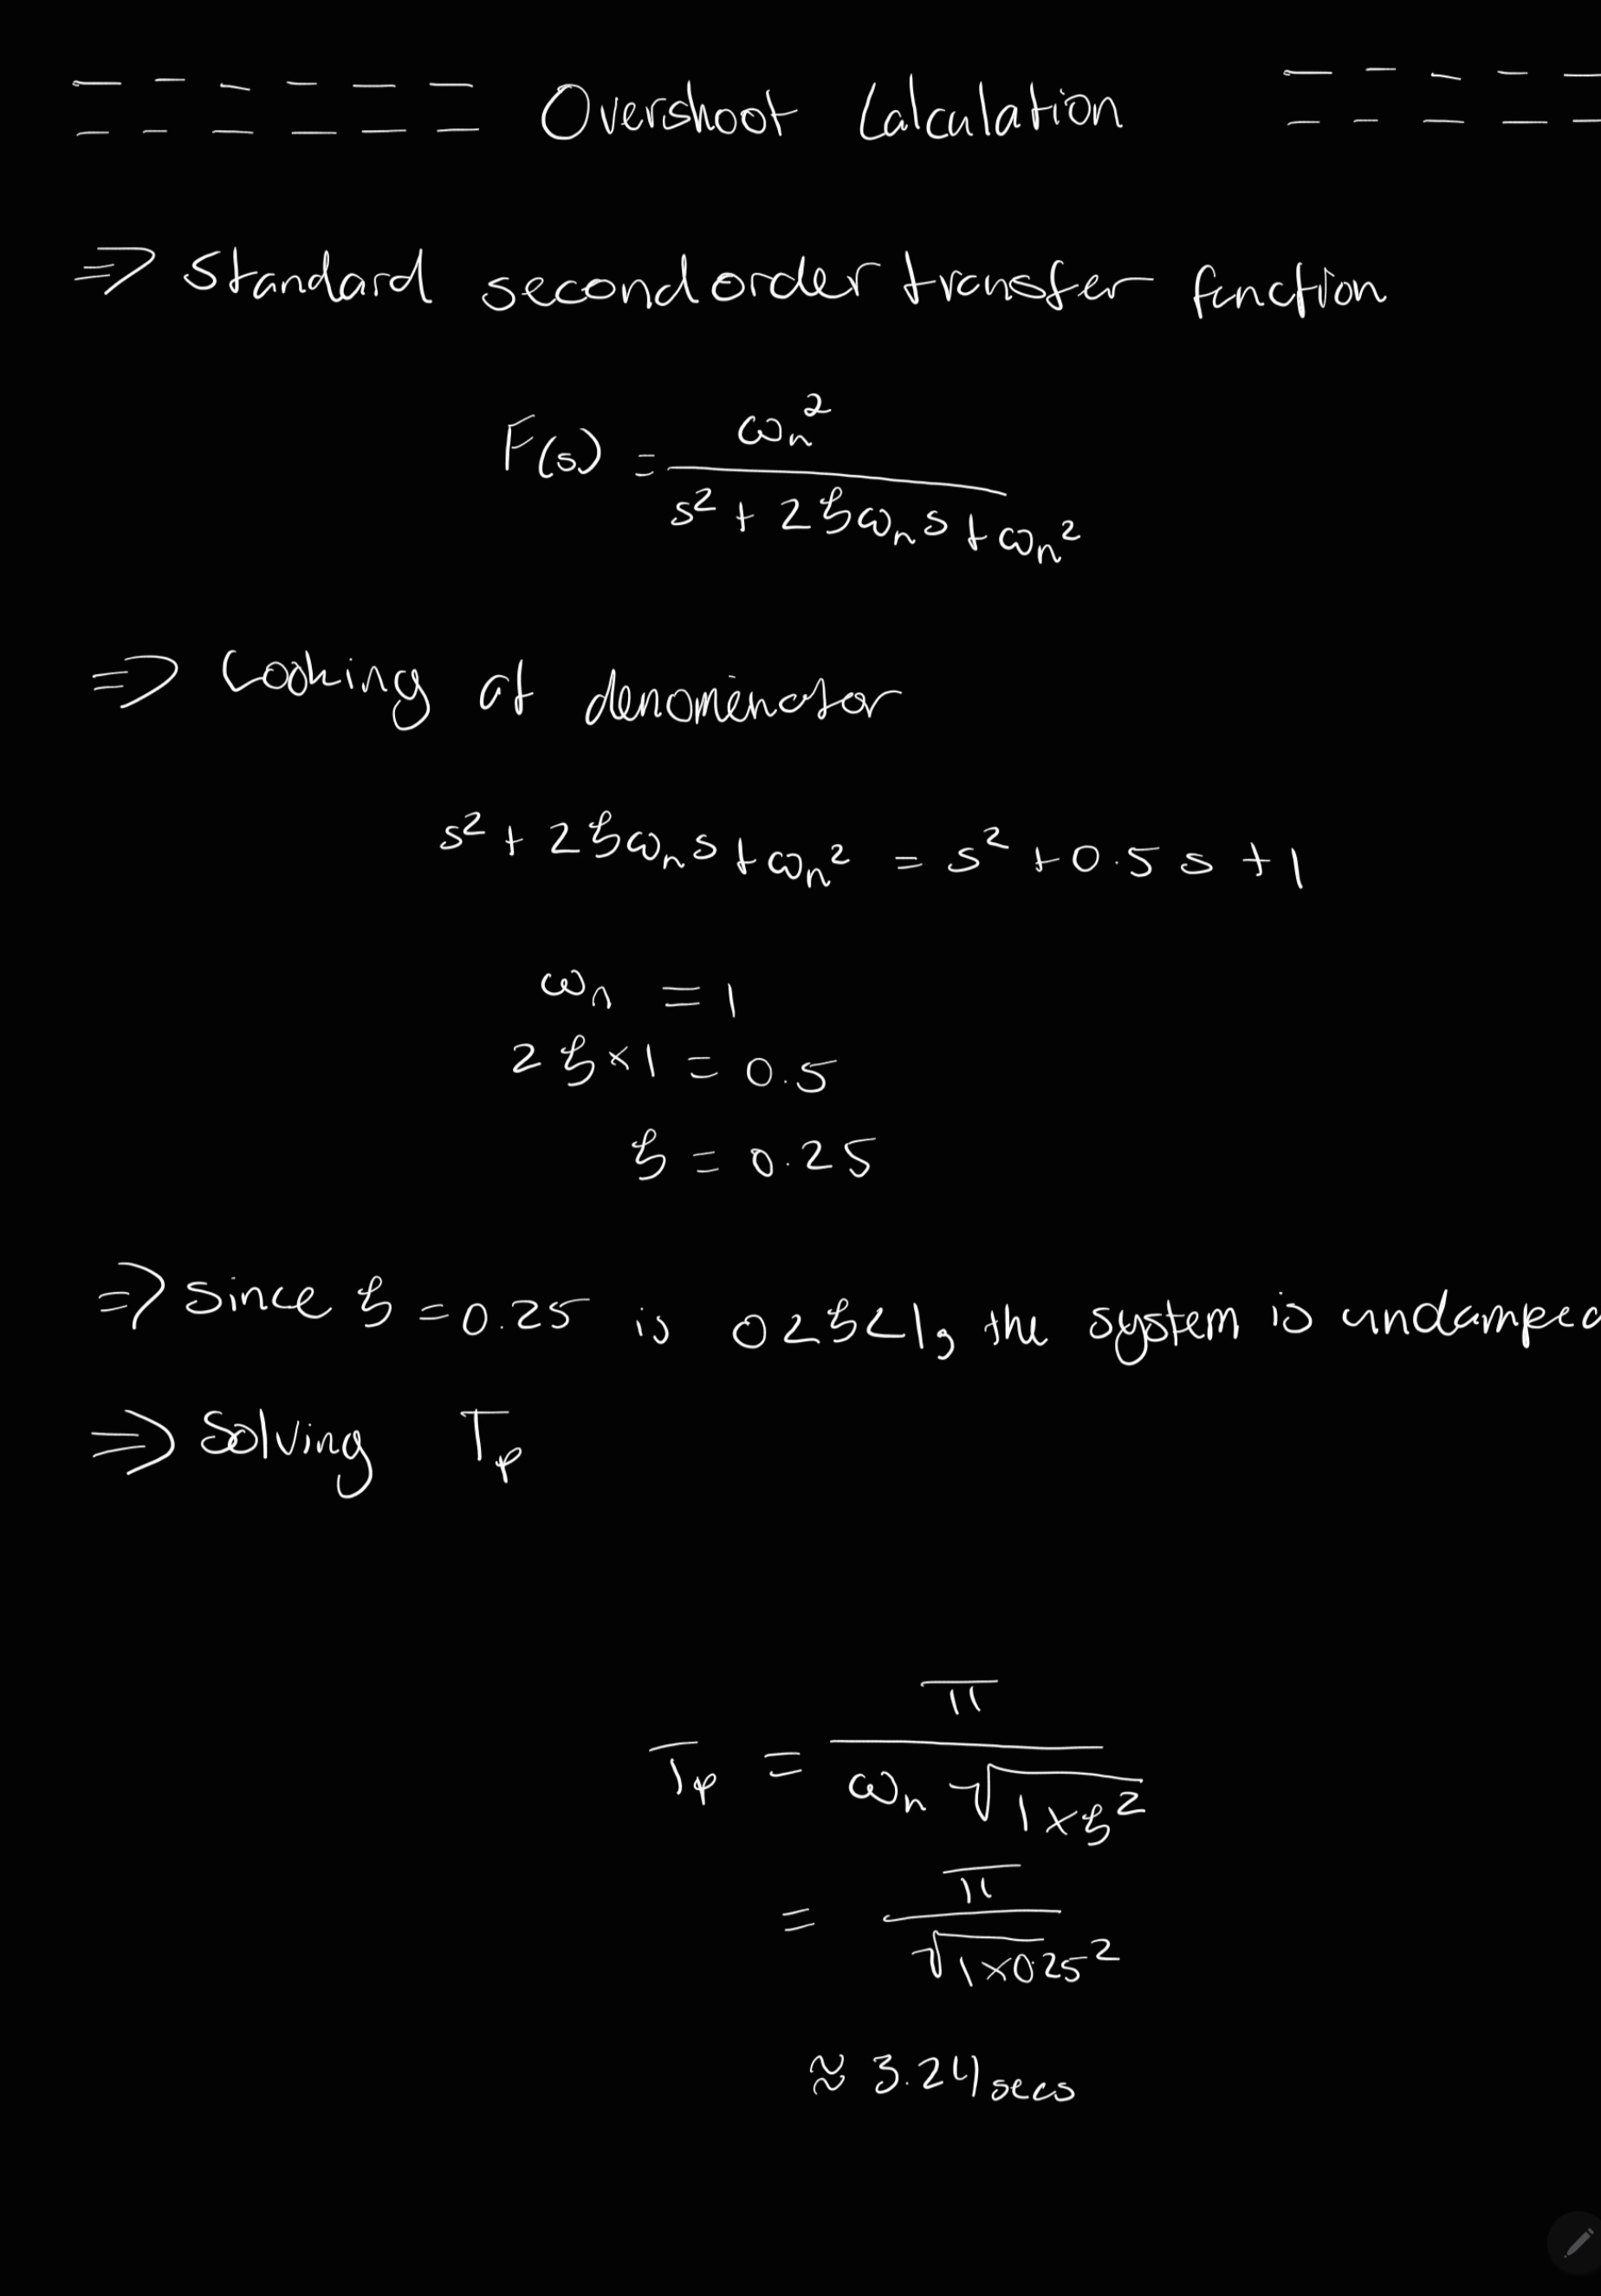 Overshoot Calculation
⇒ Standard second order transfer function
F(s) = ωn² / (s² + 2ξωn s + ωn²)
⇒ Looking at denominator
s² + 2ξωn s + ωn² = s² + 0.5 s + 1
ωn = 1
2ξ × 1 = 0.5
ξ = 0.25
⇒ Since ξ = 0.25 is 0 < ξ < 1, the system is undamped
⇒ Solving Tp
Tp = π / (ωn √(1 × ξ²))
= π / √(1 × 0.25²)
≈ 3.24 secs